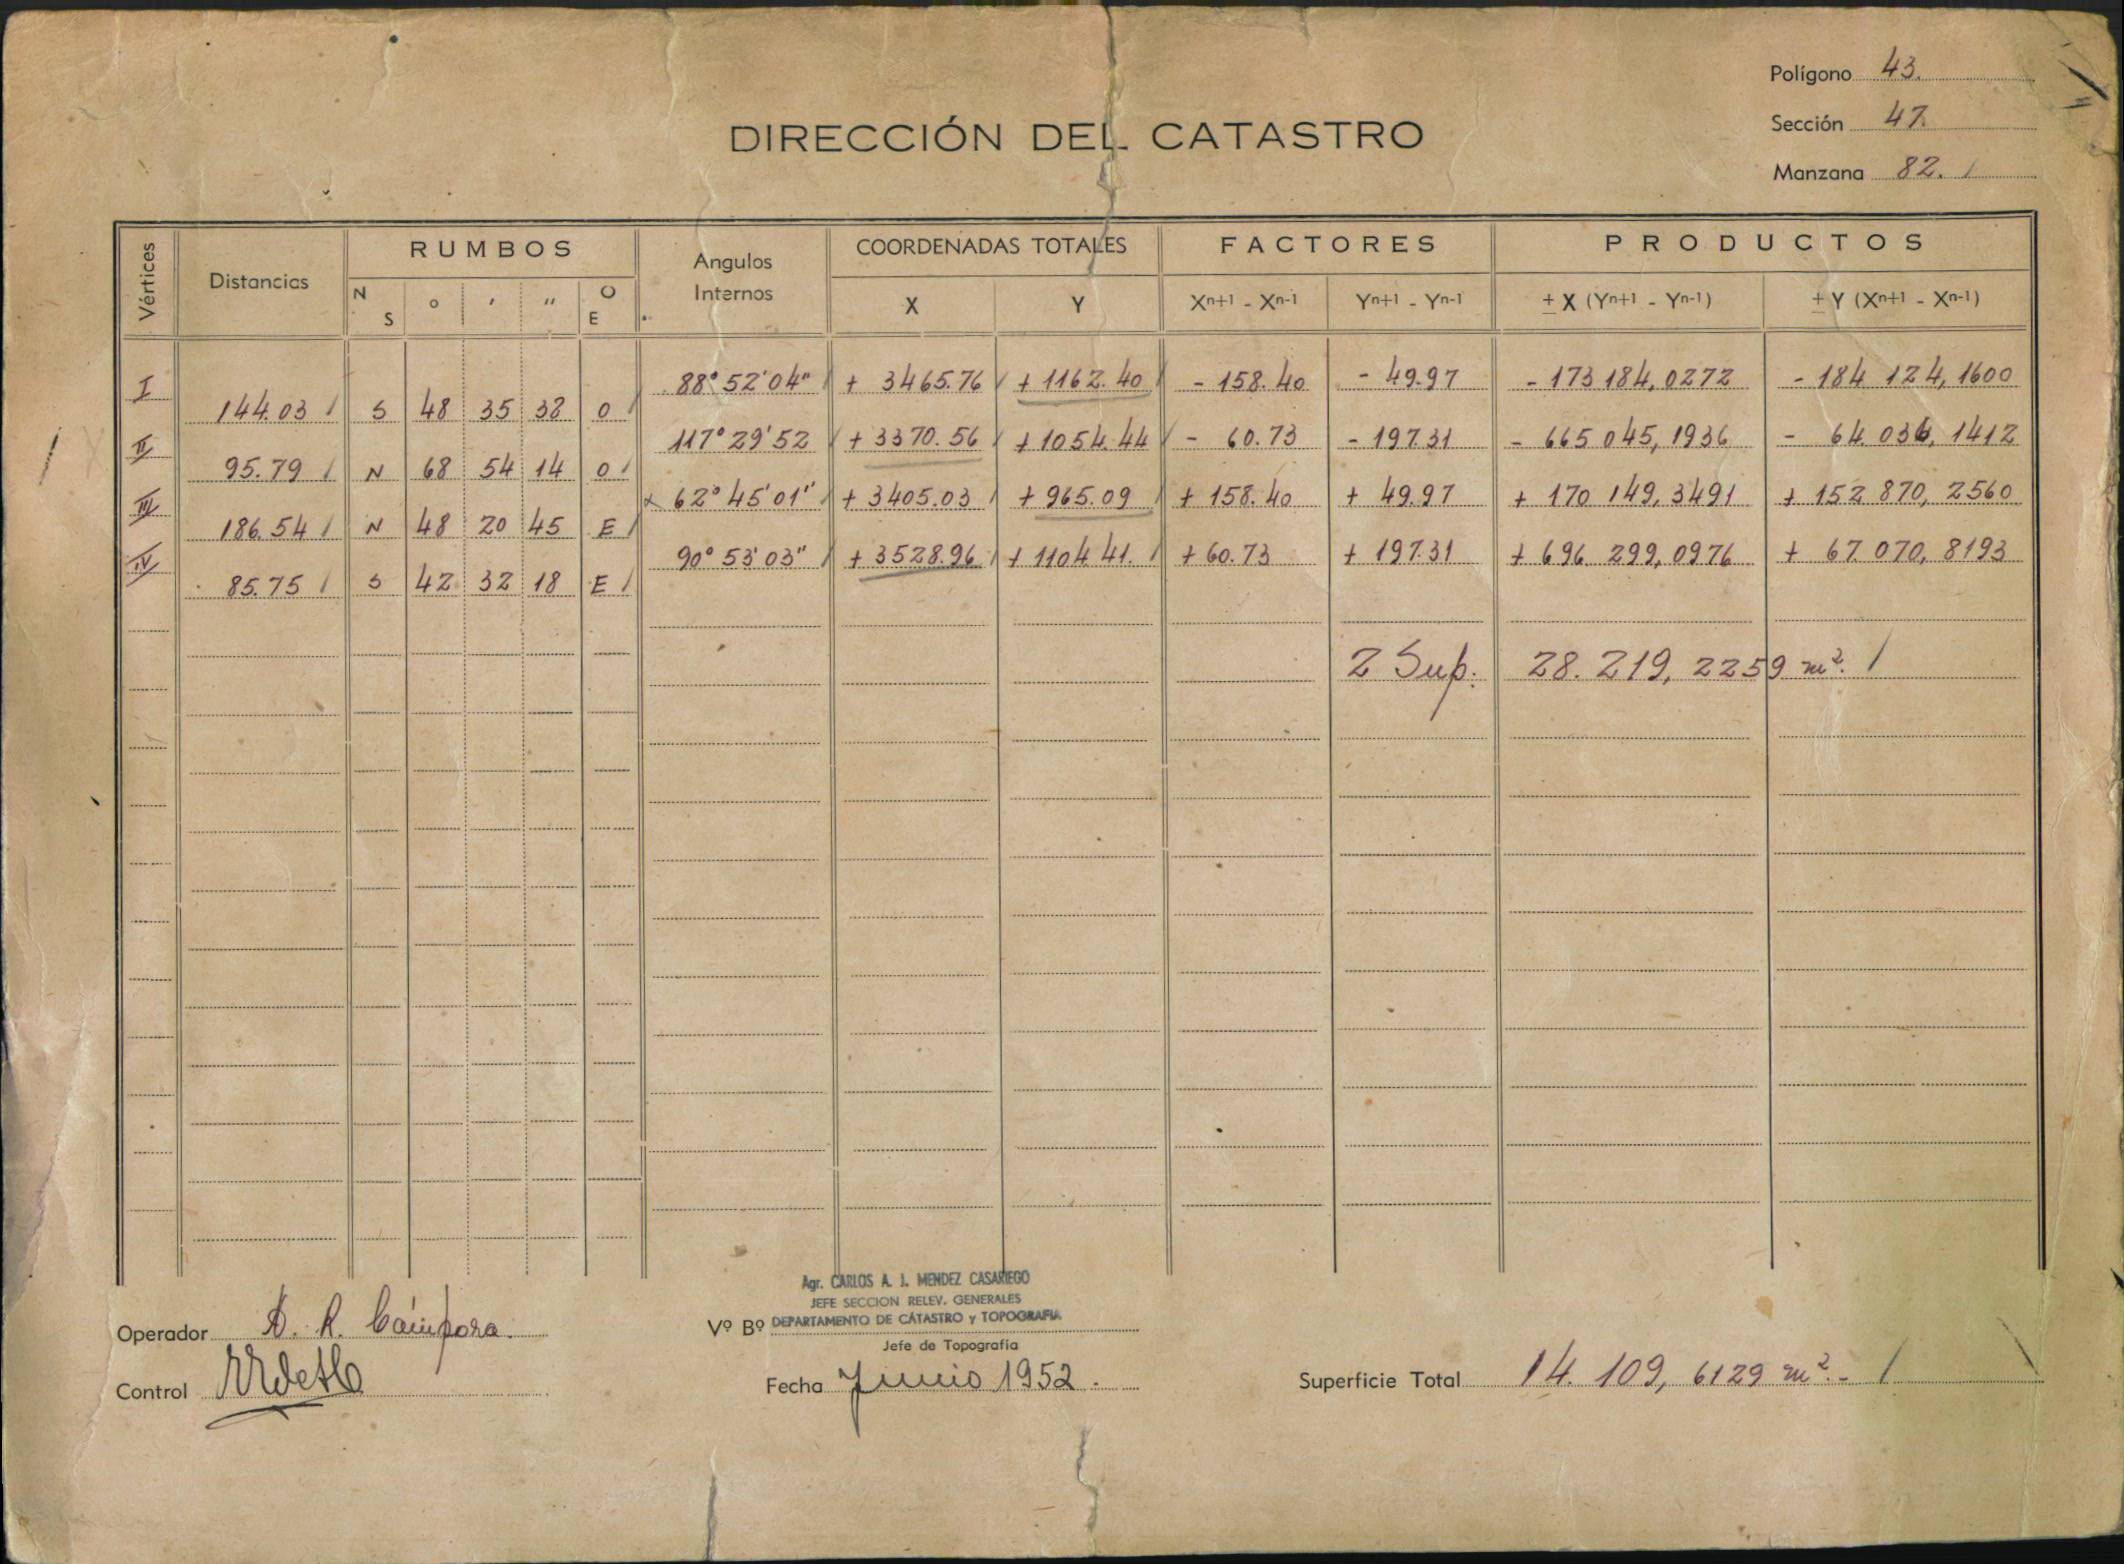 Polígono 43.
Sección 47.
Manzana 82.
DIRECCIÓN DEL CATASTRO
Vértices Distancias RUMBOS Angulos Internos COORDENADAS TOTALES FACTORES PRODUCTOS
N S ° ' " O E X Y Xn+1 - Xn-1 Yn+1 - Yn-1 ± X (Yn+1 - Yn-1) ± Y (Xn+1 - Xn-1)
I 88° 52' 04" + 3465.76 + 1162.40 - 158.40 - 49.97 - 173 184,0272 - 184 124,1600
144.03 S 48 35 38 O
II 117° 29' 52 + 3370.56 + 1054.44 - 60.73 - 197.31 - 665 045,1936 - 64 036,1412
95.79 N 68 54 14 O
III 62° 45' 01" + 3405.03 + 965.09 + 158.40 + 49.97 + 170 149,3491 + 152 870,2560
186.54 N 48 20 45 E
IV 90° 53' 03" + 3528.96 + 1104.41. + 60.73 + 197.31 + 696 299,0976 + 67.070,8193
85.75 S 42 32 18 E
2 Sup. 28.219,2259 m².
Agr. CARLOS A. J. MENDEZ CASARIEGO
JEFE SECCION RELEV. GENERALES
DEPARTAMENTO DE CATASTRO y TOPOGRAFIA
Operador A. R. Cámpora.
Vº Bº
Jefe de Topografía
Control
Fecha Junio 1952.
Superficie Total 14.109,6129 m².-